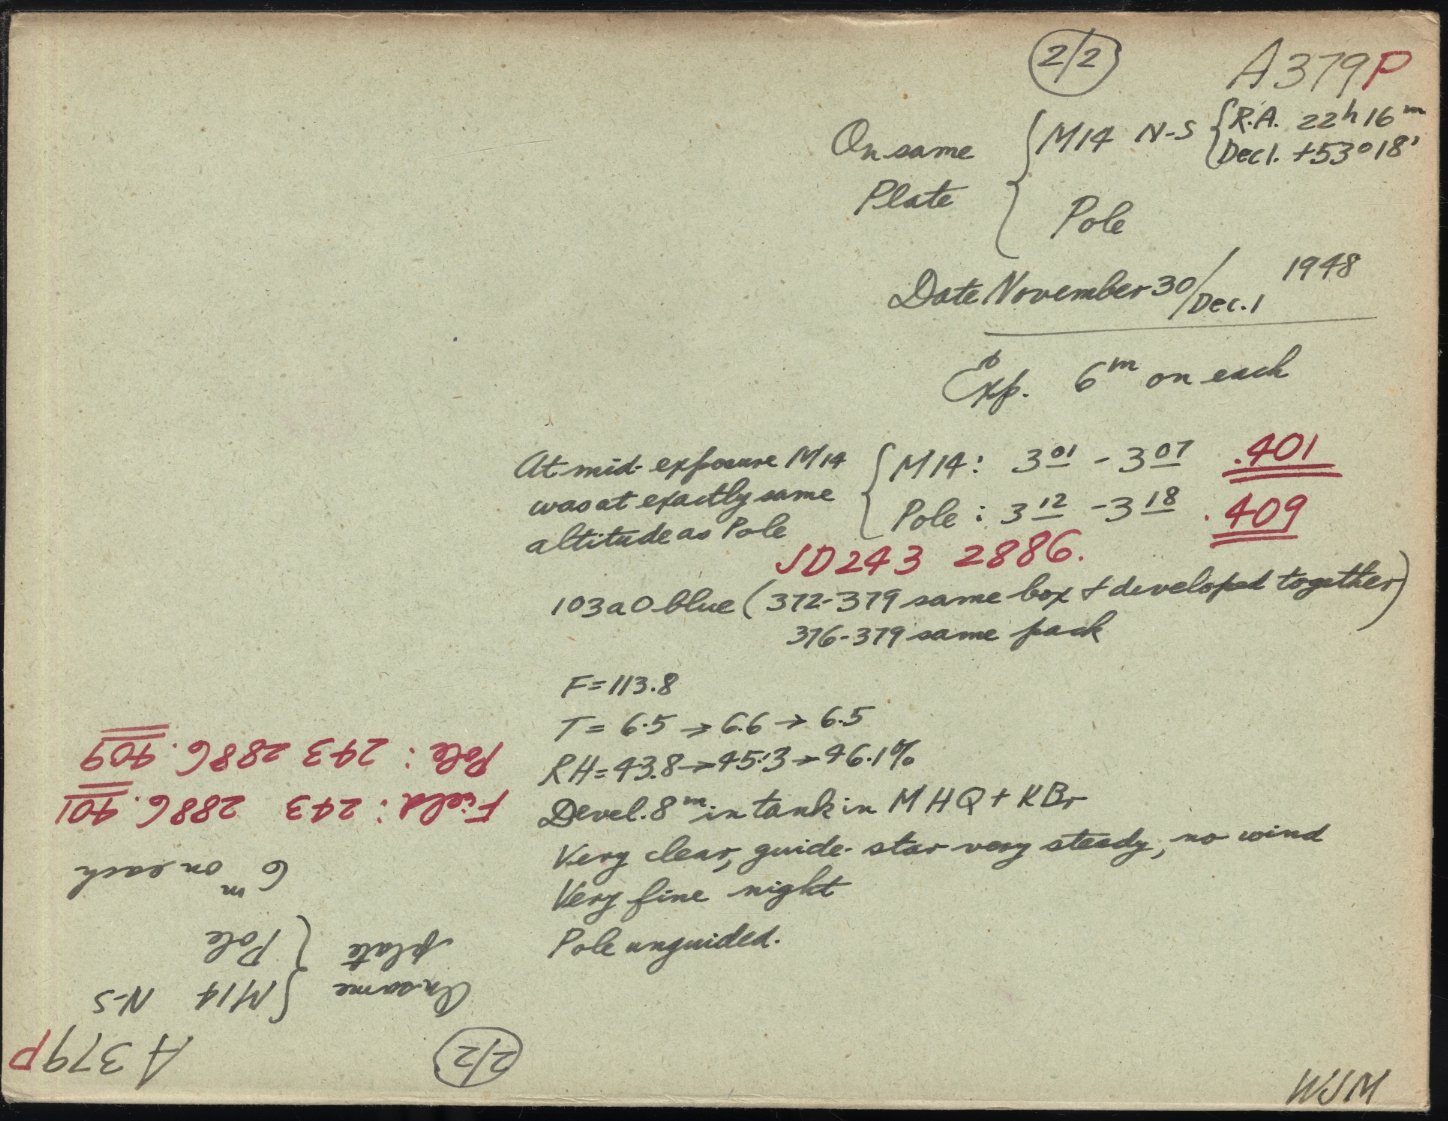 2/2
A379P
On same Plate { M14 N-S { R.A. 22h 16m
Decl. +53° 18'
Pole
Date November 30/Dec. 1 1948
Exp. 6m on each
At mid-exposure M14
was at exactly same
altitude as Pole
M14: 3 01 - 3 07 .401
Pole: 3 12 - 3 18 .409
JD 243 2886.
103aO blue (372-379 same box + developed together)
376-379 same pack
F=113.8
T= 6.5 → 6.6 → 6.5
RH=43.8→45.3→46.1%
Devel. 8m in tank in MHQ + KBr
Very clear, guide-star very steady, no wind
Very fine night
Pole unguided.
WJM
2/2
A379P
On same plate { M14 N-S
Pole
6m on each
Field: 243 2886.401
Pole: 243 2886.409